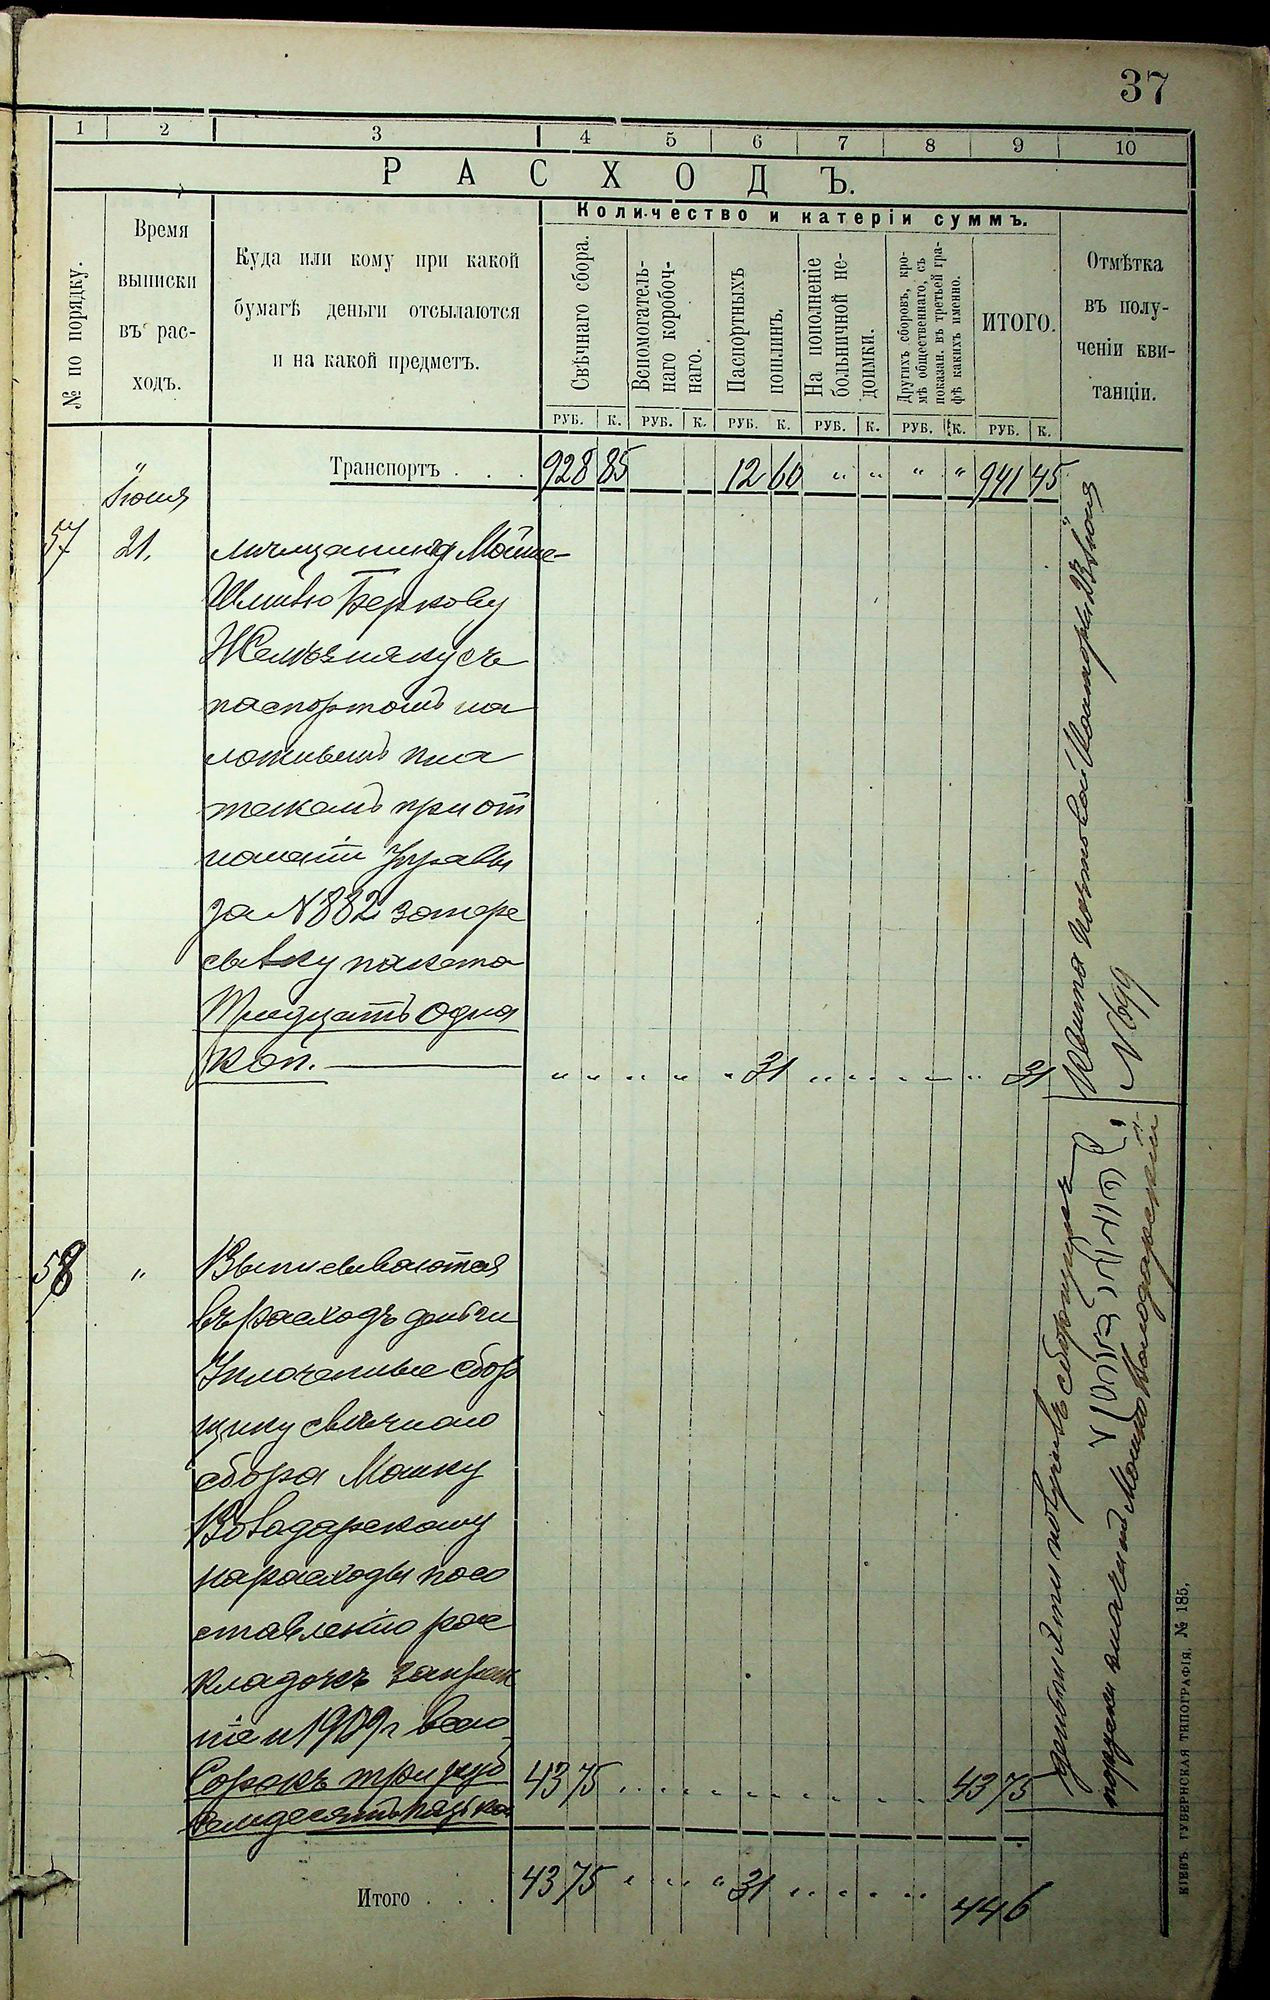 37
1 2 3 4 5 6 7 8 9 10
РАСХОДЪ.
№ по порядку.
Время
выписки
въ рас-
ходъ.
Куда или кому при какой
бумагѣ деньги отсылаются
и на какой предметъ.
Количество и катеріи суммъ.
Свѣчнаго сбора.
Вспомогатель-
наго коробоч-
наго.
Паспортныхъ
пошлинъ.
На пополненіе
больничной не-
доимки.
Другихъ сборовъ, кро-
мѣ общественнаго, съ
показан. въ третьей гра-
фѣ какихъ именно.
ИТОГО.
Отмѣтка
въ полу-
ченіи кви-
танціи.
РУБ. К. РУБ. К. РУБ. К. РУБ. К. РУБ. К. РУБ. К.
Транспортъ . . . 928 85 12 60 „ „ „ „ 941 45
Іюня
57 21. Мѣщанину Мойше-
Шлиово Беркову
Желѣзняку съ
паспортомъ на
ложнымъ пла
тежомъ при от
ношеніи Управы
за N 882 за пере
сылку пакета
Тридцать одна
коп. 31 31
Квит. Почтовой Конторы 23 Іюня
N 699
58 „ Выписываются
въ расходъ деньги
Уплоченные сбор
щику свѣчнаго
сбора Мошку
Володарскому
на расходы по со
ставленію рас
кладокъ
1909 г всего
Сорокъ три руб
семдесятъ пять коп 43 75 43 75
деньги эти получилъ сборщикъ
Мошко Володарскій
Итого . . . 43 75 31 44 6
КІЕВЪ ГУБЕРНСКАЯ ТИПОГРАФІЯ, № 185.